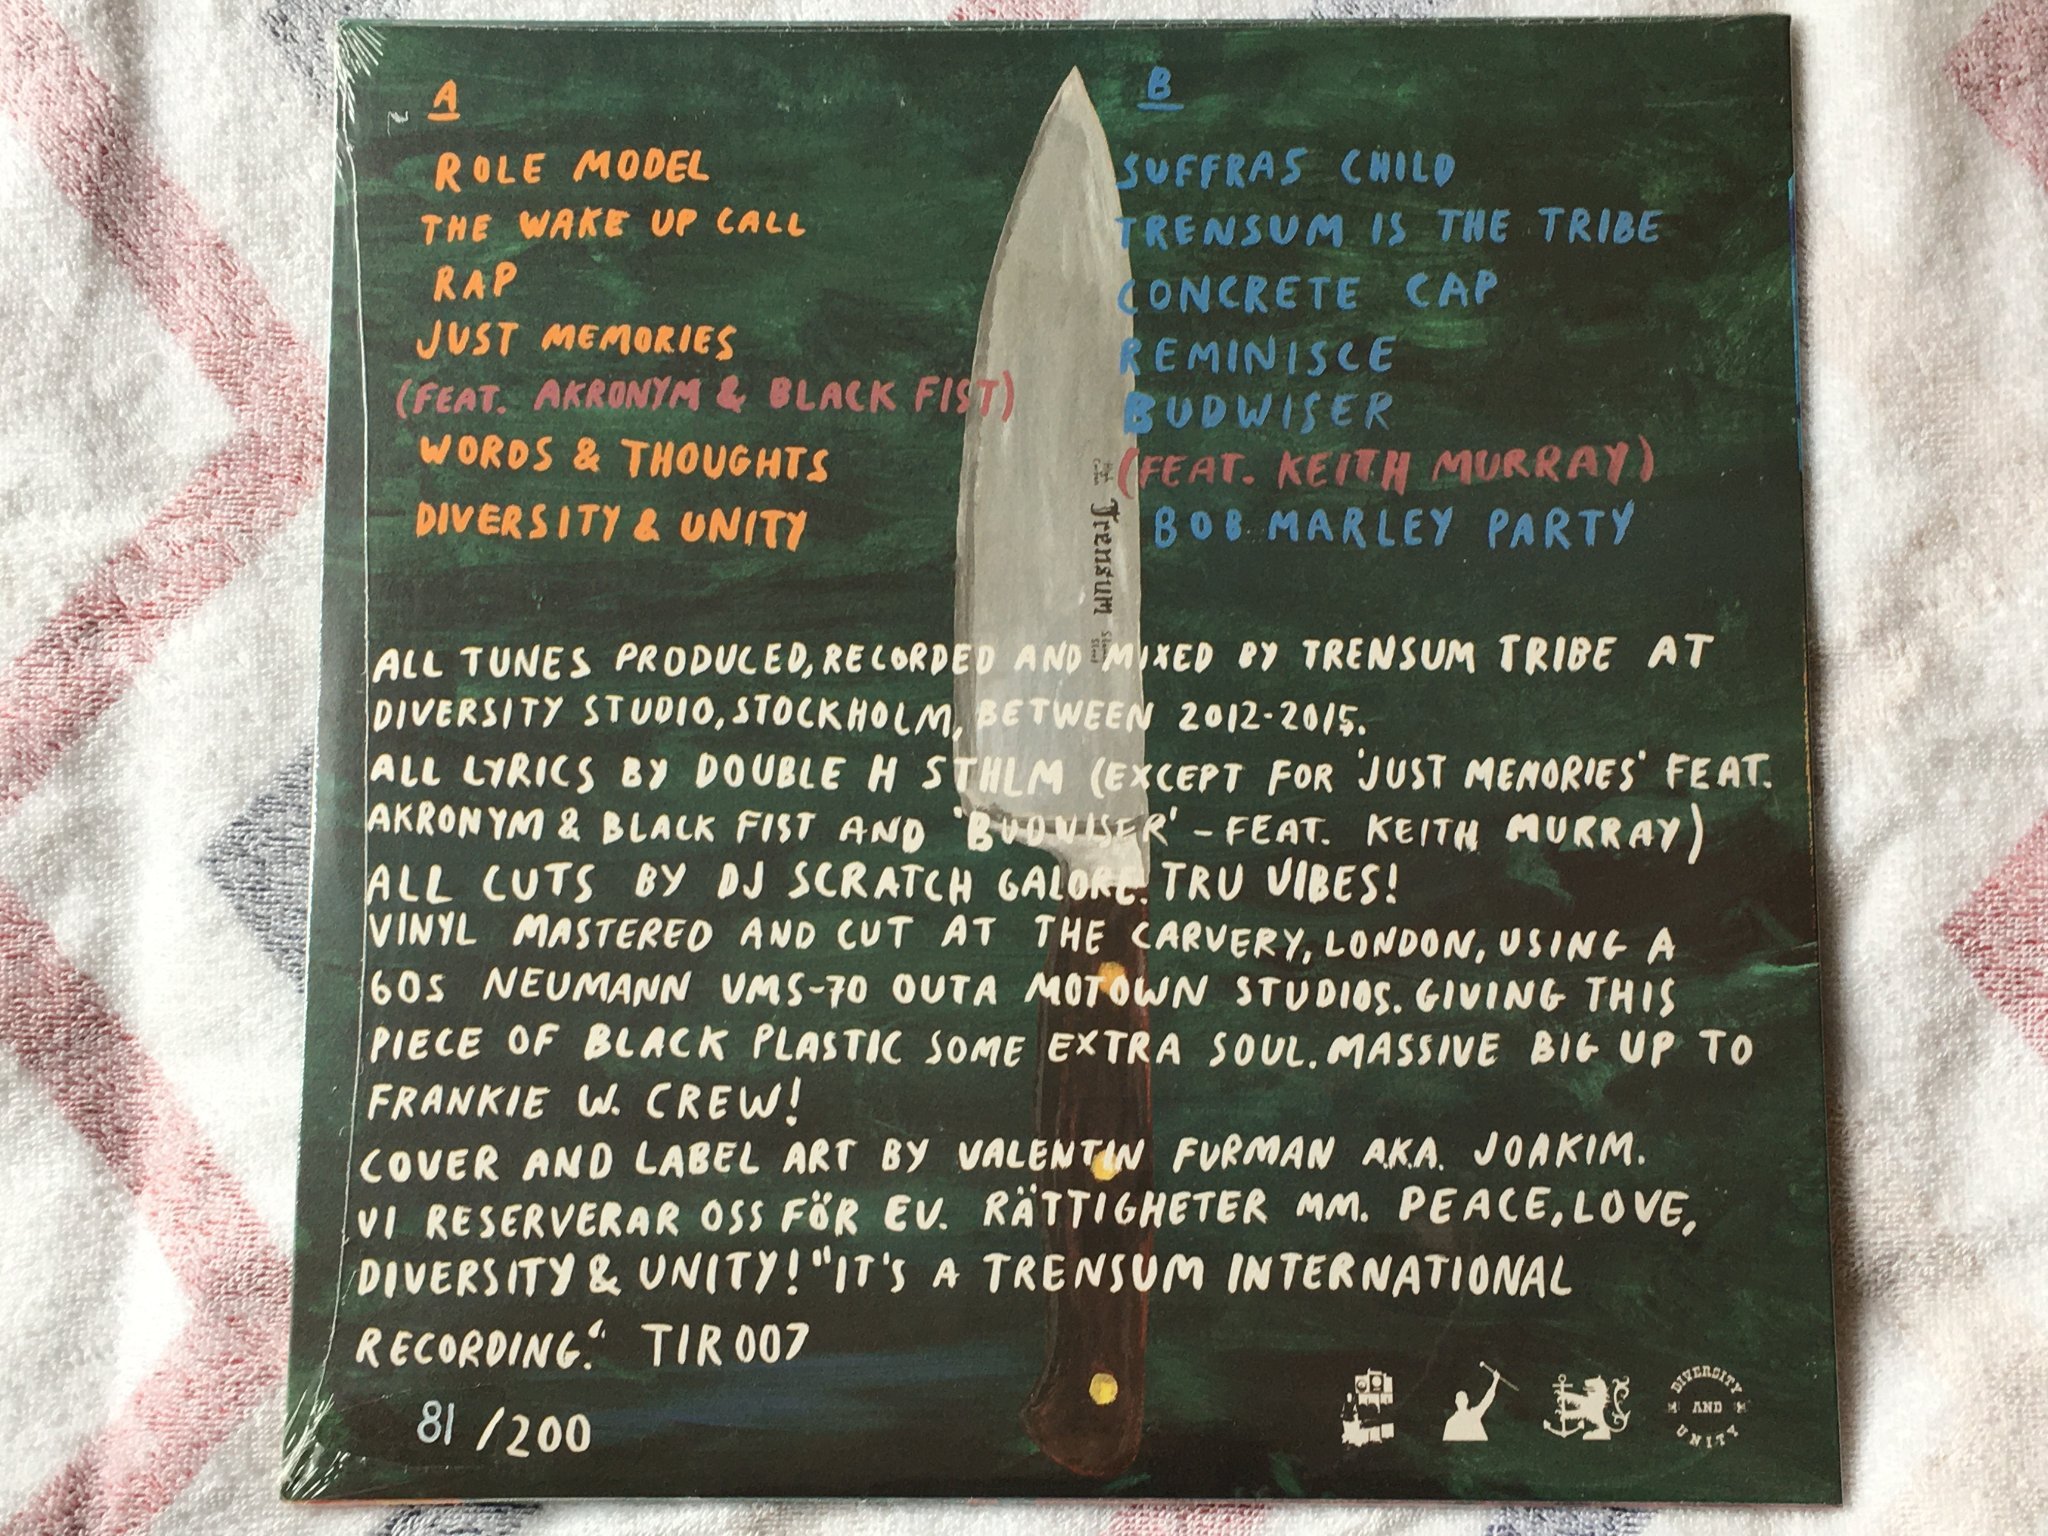 A
ROLE MODEL
THE WAKE UP CALL
RAP
JUST MEMORIES
(FEAT. AKRONYM & BLACK FIST)
WORDS & THOUGHTS
DIVERSITY & UNITY
B
SUFFRAS CHILD
TRENSUM IS THE TRIBE
CONCRETE CAP
REMINISCE
BUDWISER
(FEAT. KEITH MURRAY)
BOB MARLEY PARTY
Trensum
ALL TUNES PRODUCED, RECORDED AND MIXED BY TRENSUM TRIBE AT
DIVERSITY STUDIO, STOCKHOLM, BETWEEN 2012-2015.
ALL LYRICS BY DOUBLE H STHLM (EXCEPT FOR 'JUST MEMORIES' FEAT.
AKRONYM & BLACK FIST AND 'BUDWISER' - FEAT. KEITH MURRAY)
ALL CUTS BY DJ SCRATCH GALORE. TRU VIBES!
VINYL MASTERED AND CUT AT THE CARVERY, LONDON, USING A
60S NEUMANN VMS-70 OUTA MOTOWN STUDIOS. GIVING THIS
PIECE OF BLACK PLASTIC SOME EXTRA SOUL. MASSIVE BIG UP TO
FRANKIE W. CREW!
COVER AND LABEL ART BY VALENTIN FURMAN A.K.A. JOAKIM.
VI RESERVERAR OSS FÖR EV. RÄTTIGHETER MM. PEACE, LOVE,
DIVERSITY & UNITY! "IT'S A TRENSUM INTERNATIONAL
RECORDING." TIR 007
81 /200
DIVERSITY
AND
UNITY